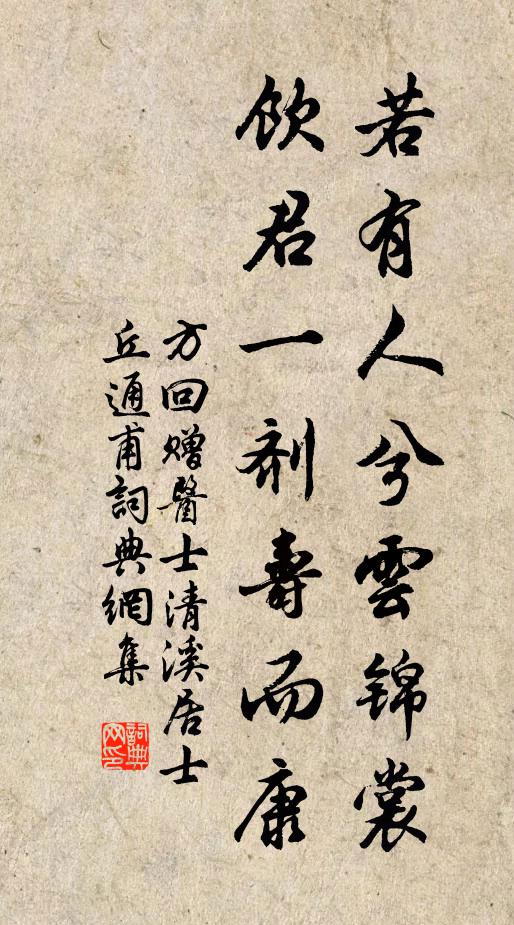 若有人兮雲錦裳
飲君一劑壽而康
方回贈醫士清溪居士
丘通甫詞典網集
詞典网印